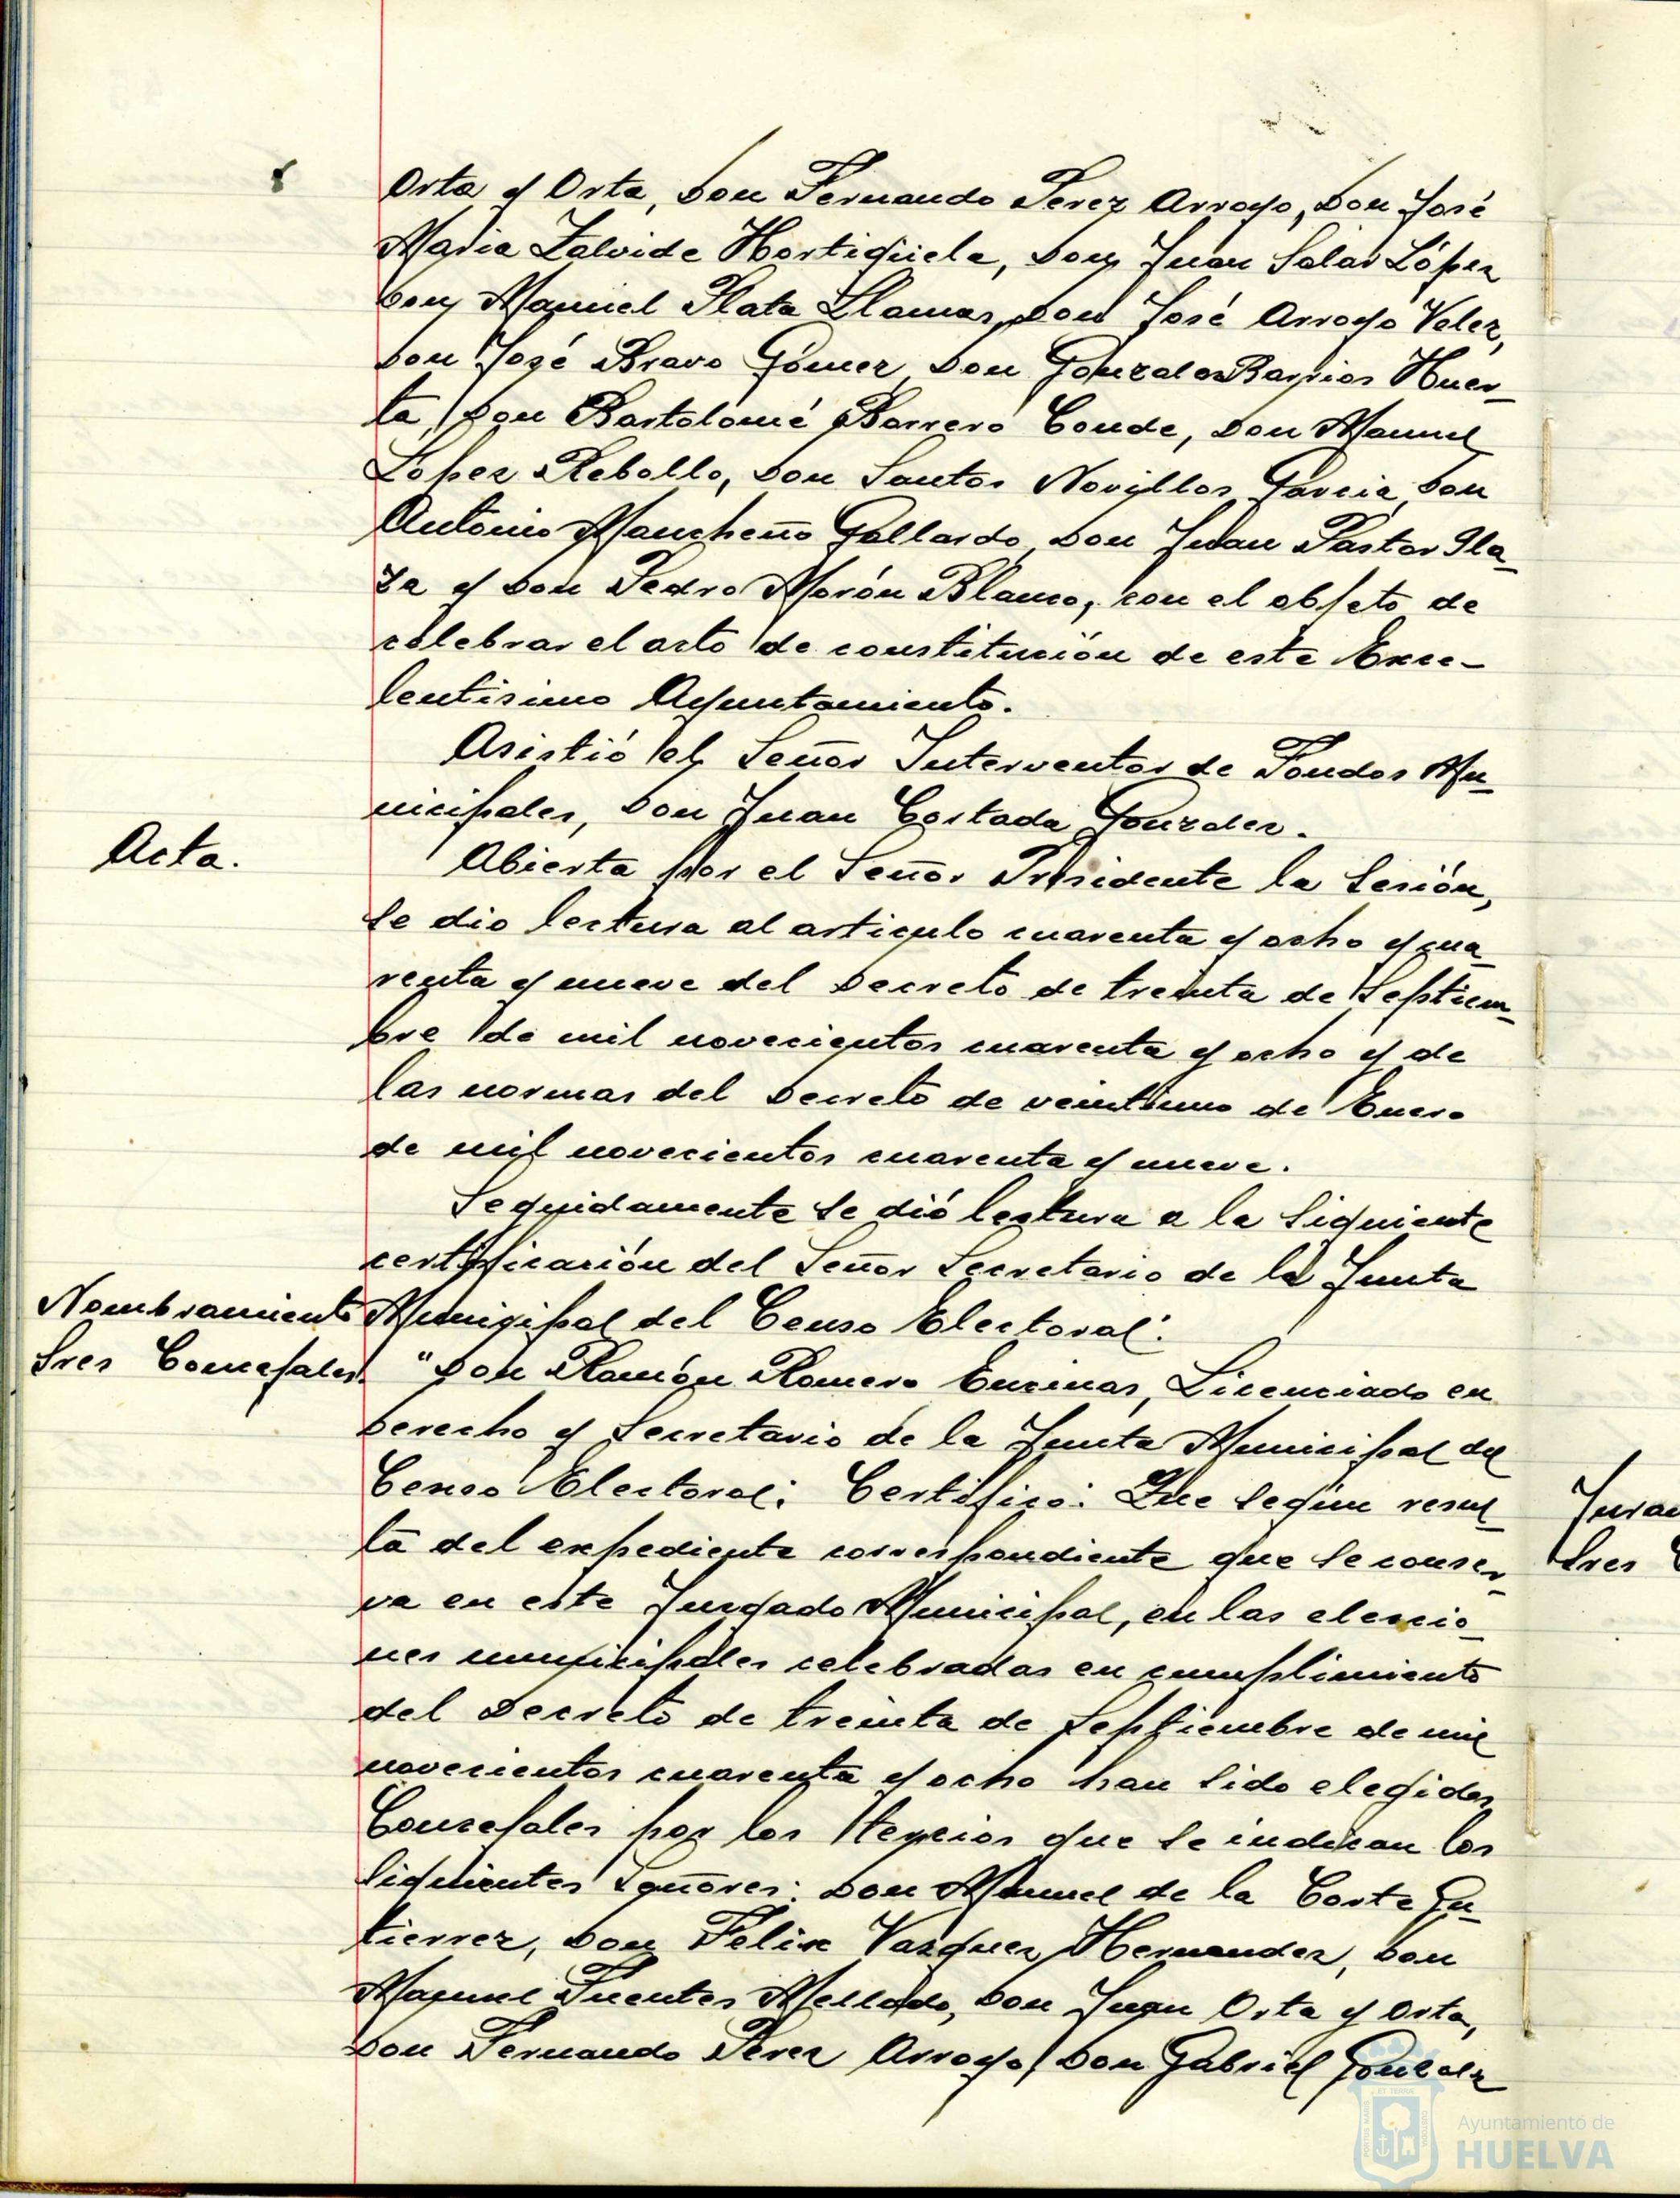 Orta y Orta, Don Fernando Perez Arroyo, Don José
Maria Zalvide Hortigüela, Don Juan Salas López
Don Manuel Plata Llamas, Don José Arroyo Velez,
Don José Bravo Gómez, Don Gonzalo Barrios Huer-
ta, Don Bartolomé Borrero Conde, Don Manuel
Lopez Rebollo, Don Santos Novillos Garcia, Don
Antonio Mancheño Gallardo, Don Juan Pastor Pla-
za y Don Pedro Morón Blanco, con el objeto de
celebrar el acto de constitución de este Exce-
lentisimo Ayuntamiento.
Asistió el Señor Interventor de Fondos Mu-
nicipales, Don Juan Costada Gonzalez.
Acta.
Abierta por el Señor Presidente la Sesión,
se dio lectura al articulo cuarenta y ocho y cua-
renta y nueve del Decreto de treinta de Septiem-
bre de mil novecientos cuarenta y ocho y de
las normas del Decreto de veintiuno de Enero
de mil novecientos cuarenta y nueve.
Seguidamente se dió lectura a la siguiente
certificación del Señor Secretario de la Junta
Nombramiento Municipal del Censo Electoral:
Sres Concejales. "Don Ramón Romero Encinas, Licenciado en
Derecho y Secretario de la Junta Municipal del
Censo Electoral: Certifico: Que según resul-
ta del expediente correspondiente que se conser-
va en este Juzgado Municipal, en las eleccio-
nes municipales celebradas en cumplimiento
del Decreto de treinta de Septiembre de mil
novecientos cuarenta y ocho han sido elegidos
Concejales por los tercios que se indican los
siguientes señores: Don Manuel de la Corte Gu-
tierrez, Don Felix Vazquez Hernandez, Don
Manuel Fuentes Mellado, Don Juan Orta y Orta,
Don Fernando Perez Arroyo, Don Gabriel Gonzalez
Sres
Ayuntamiento de
HUELVA